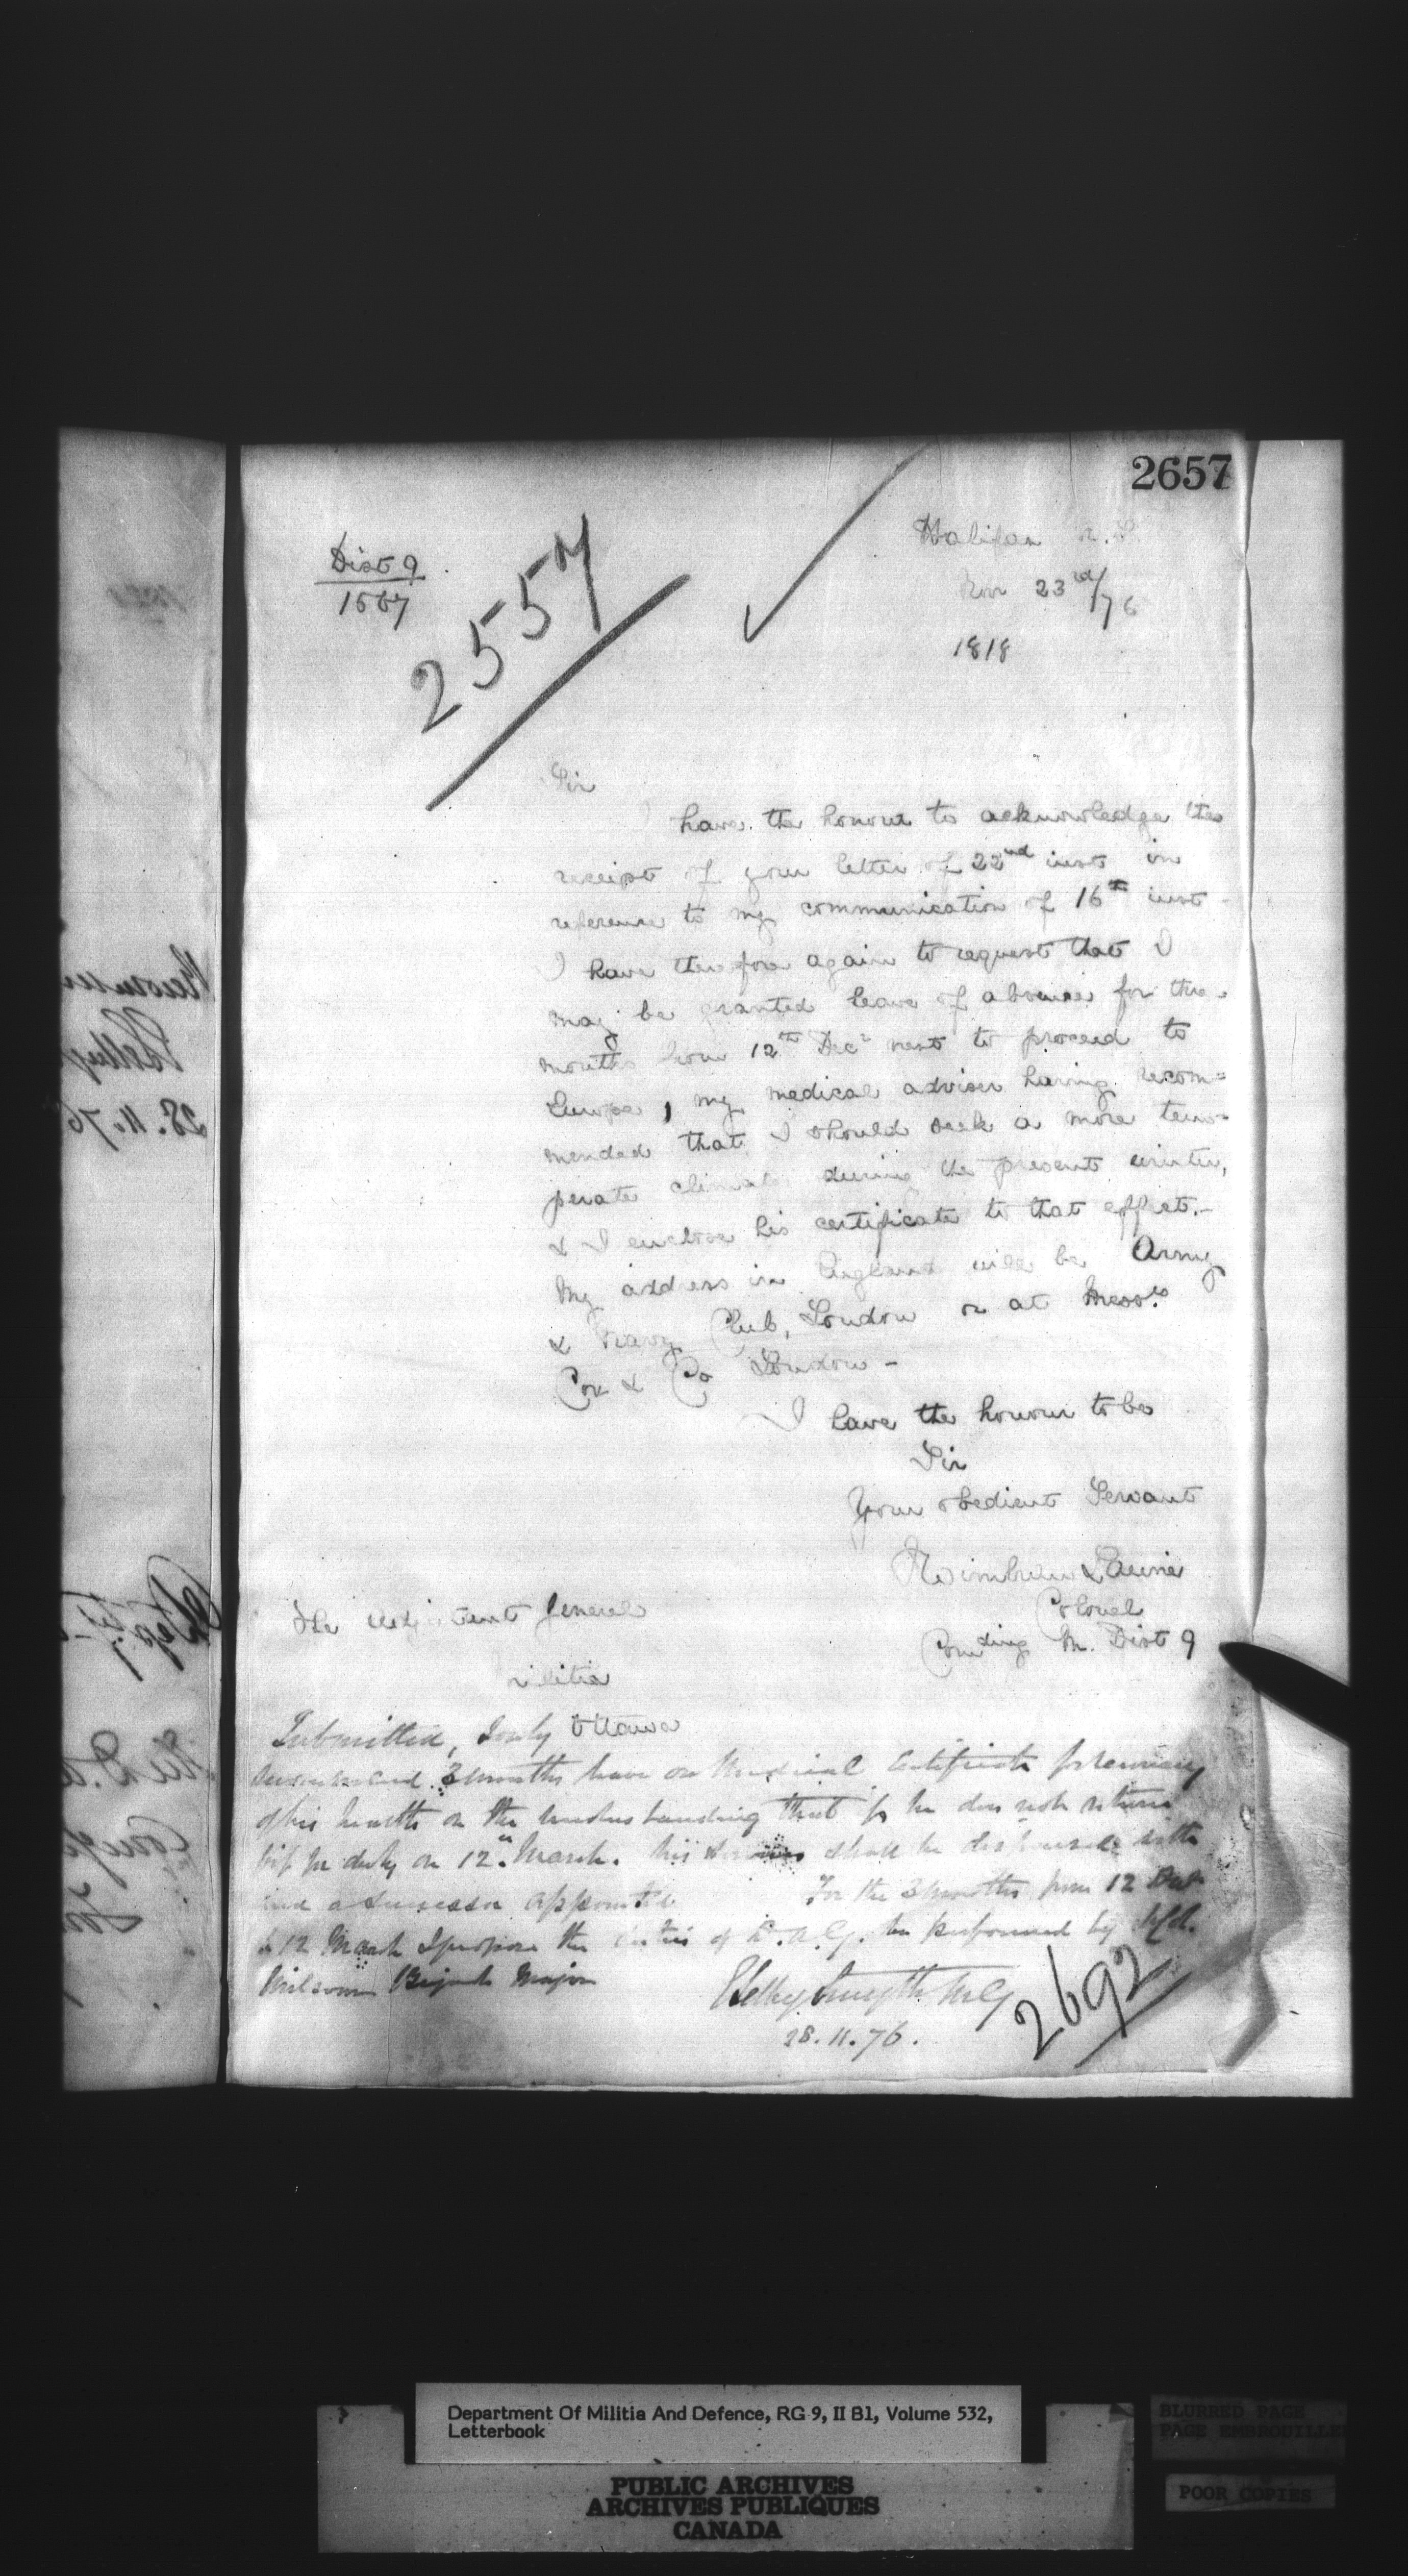 2657
Halifax N.S.
Nov 23rd/76
1818
Dist 9
1567
2557
Sir
I have the honour to acknowledge the
receipt of your letter of 22nd inst in
reference to my communication of 16th inst -
I have therefore again to request that I
may be granted leave of absence for three
months from 12th Decr next to proceed to
Europe, my medical adviser having recom=
mended that I should seek a more tem=
perate climate during the present winter,
& I enclose his certificate to that effect.-
My address in England will be Army
& Navy Club, London or at Messrs
Cox & Co London -
I have the honour to be
Sir
Your obedient Servant
Laurie
Colonel
Comding M. Dist 9
The Adjutant General
Militia
Ottawa
Submitted, I only
recommend 3 months leave on Medical Certificate for recovery
of his health on the understanding that if he does not return
for duty on 12th March. his services shall be dispensed with
and a successor appointed For the 3 months from 12 Dec
to 12 March I propose the duties of D.A.G. be performed by
Milsom Brigade Major
Selby Smyth M G
28.11.76.
2692
28.11.76
Department Of Militia And Defence, RG 9, II B1, Volume 532,
Letterbook
PUBLIC ARCHIVES
ARCHIVES PUBLIQUES
CANADA
BLURRED PAGE
PAGE EMBROUILLEE
POOR COPIES